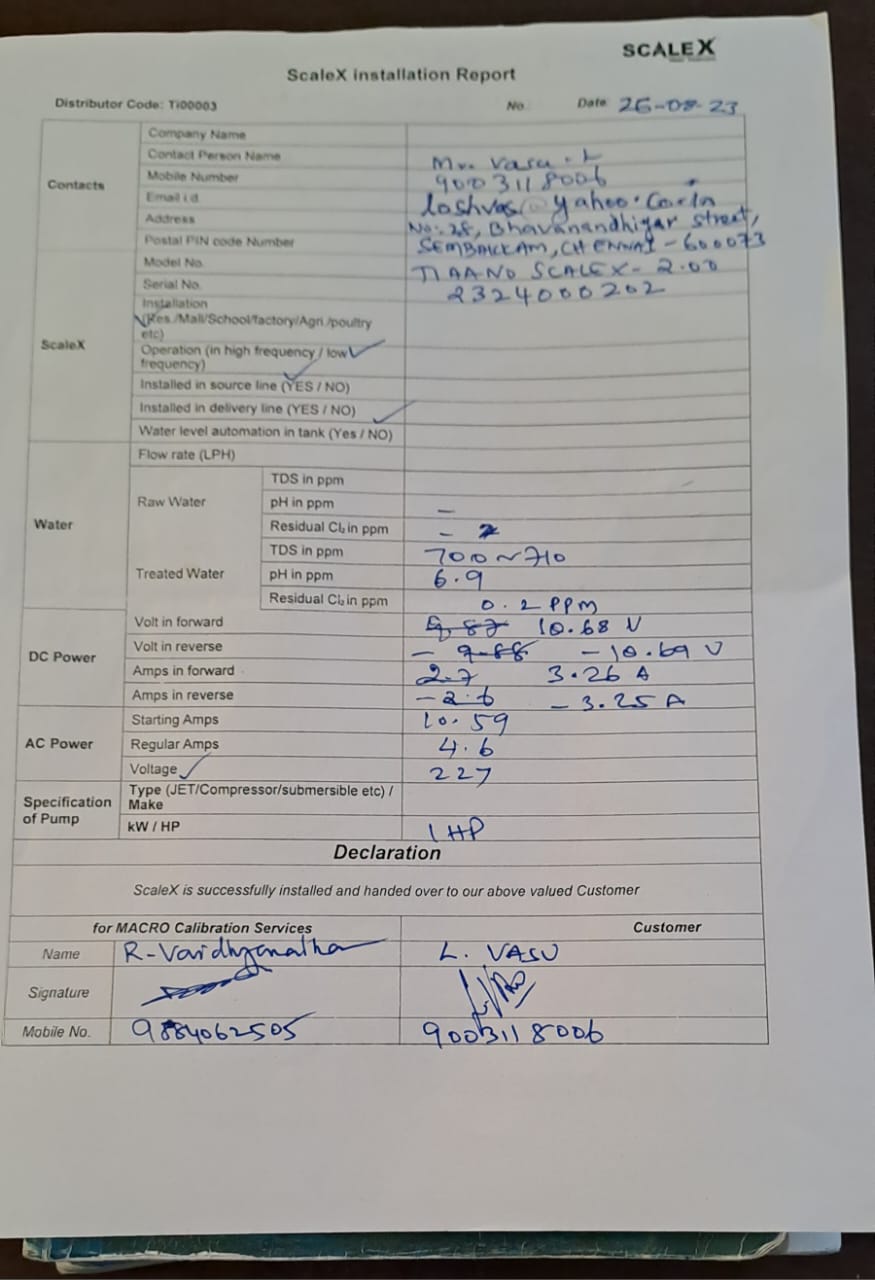 SCALEX
ScaleX installation Report
Distributor Code: TI00003 No. Date 26-08-23
Contacts
Company Name
Contact Person Name Mr. Vasu. L
Mobile Number 9003118006
Email i.d loshvas@yahoo.co.in
Address No: 28, Bhavanandhiyar Street,
Postal PIN code Number SEMBAKKAM, CHENNAI - 600073
ScaleX
Model No. TIAANO SCALEX - 2.00
Serial No. 2324000202
Installation
(Res./Mall/School/factory/Agri./poultry
etc)
Operation (in high frequency / low
frequency)
Installed in source line (YES / NO)
Installed in delivery line (YES / NO)
Water level automation in tank (Yes / NO)
Water
Flow rate (LPH)
Raw Water
TDS in ppm
pH in ppm -
Residual Cl₂ in ppm -
Treated Water
TDS in ppm 700 ~ 710
pH in ppm 6.9
Residual Cl₂ in ppm 0.2 PPM
DC Power
Volt in forward 10.68 V
Volt in reverse - 9.88 - 10.69 V
Amps in forward 2.7 3.26 A
Amps in reverse - 2.6 - 3.25 A
AC Power
Starting Amps 10.59
Regular Amps 4.6
Voltage 227
Specification
of Pump
Type (JET/Compressor/submersible etc) /
Make
kW / HP 1 HP
Declaration
ScaleX is successfully installed and handed over to our above valued Customer
for MACRO Calibration Services Customer
Name R-Vaidhyanatha L. VASU
Signature
Mobile No. 9884062505 9003118006